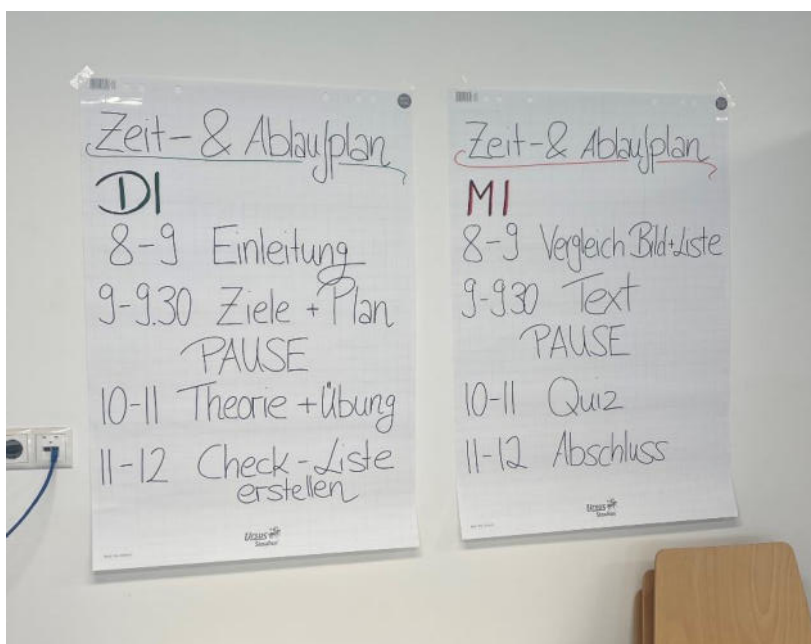 Zeit- & Ablaufplan
DI
8-9 Einleitung
9-9.30 Ziele + Plan
PAUSE
10-11 Theorie + Übung
11-12 Check-Liste
erstellen
Ursus
Zeit- & Ablaufplan
MI
8-9 Vergleich Bild+Liste
9-930 Text
PAUSE
10-11 Quiz
11-12 Abschluss
Ursus